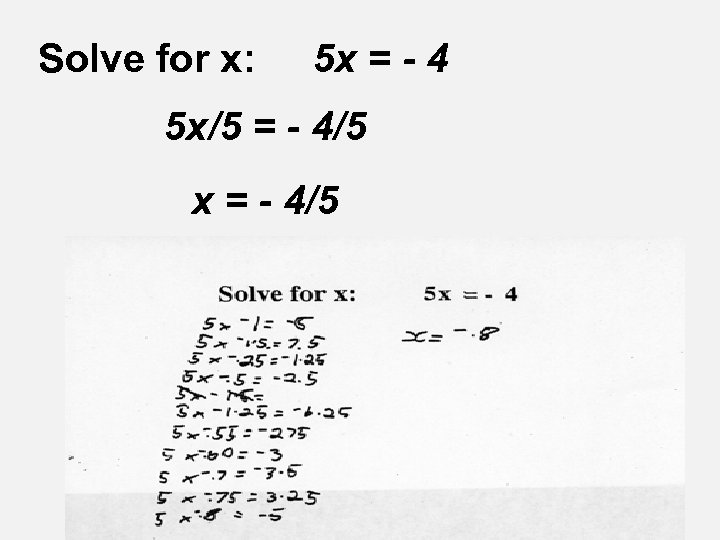 Solve for x: 5x = - 4
5x/5 = - 4/5
x = - 4/5
Solve for x: 5x = - 4
5x -1 = -5
x= -.8
5x -1.5 = 7.5
5x -.25 = -1.25
5x -.5 = -2.5
5x -1.25 = -6.25
5x -.55 = -275
5 x -.60 = -3
5 x -.7 = -3.5
5 x -.75 = 3.25
5 x -.8 = -5